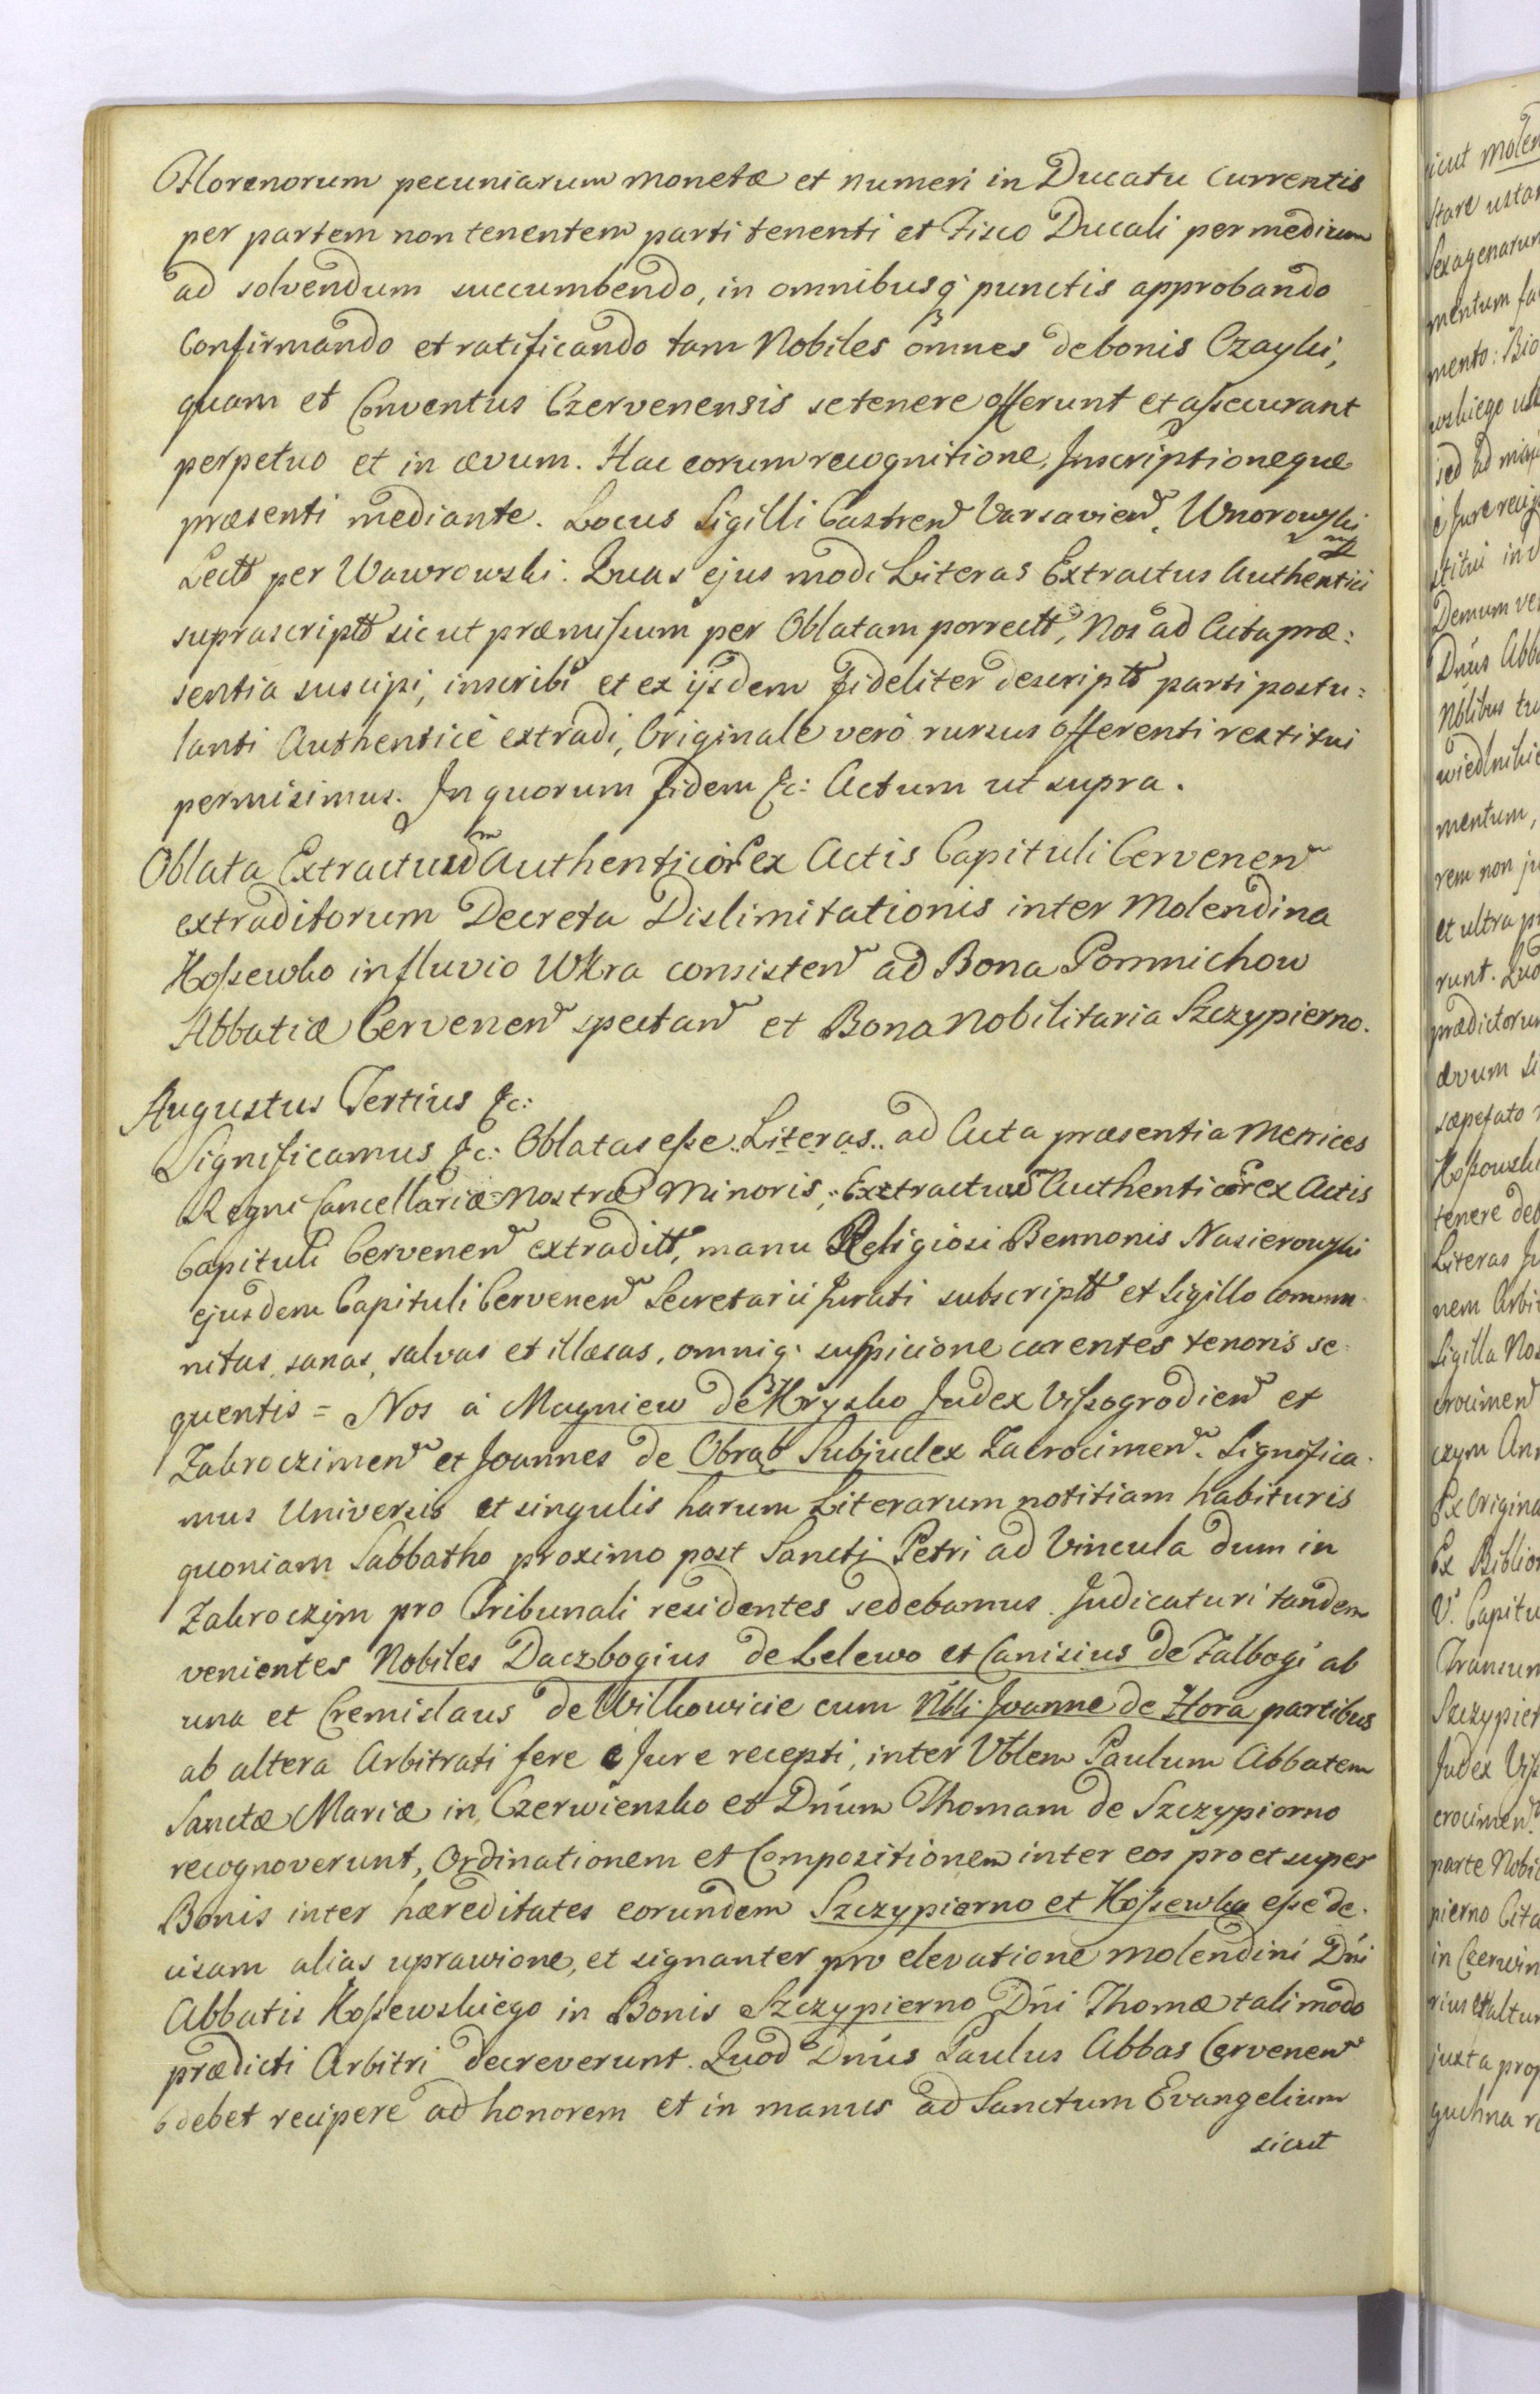 Florenorum pecuniarum monetæ et numeri in Ducatu Currentis
per partem non tenentem parti tenenti et Fisco Ducali per medium
ad solvendum succumbendo, in omnibusq punctis approbando
Confirmando et ratificando tam Nobiles omnes de bonis Czayki,
quam et Conventus Czervenensis se tenere offerunt et assecurant
perpetuo et in ævum. Hac eorum recognitione, Inscriptioneque
præsenti mediante. Locus Sigilli Castren Varsavien. Wnorowski
mp
Lectt per Wawrowski. Quas ejus modi Literas Extractus Authentici
suprascriptt sicut præmissum per Oblatam porrectt, Nos ad Acta præ:
sentia suscipi, inscribi et ex ijsdem fideliter descriptt parti postu:
lanti Authentice extradi, Originale vero rursus offerenti restitui
permisimus. In quorum fidem &c: Actum ut supra.
Oblata Extractuum Authenticor ex Actis Capituli Cervenen
extraditorum Decreta Dislimitationis inter Molendina
Kossewko in fluvio Wkra consisten ad Bona Pomnichow
Abbatiæ Cervenen spectan et Bona Nobilitaria Szczypierno.
Augustus Tertius &c:
Significamus &c: Oblatas esse Literas ad Acta præsentia Metrices
Regni Cancellariæ Nostræ Minoris, Extractuum Authenticor ex Actis
Capituli Cervenen extraditt, manu Religiosi Bennonis Nasierowski
ejusdem Capituli Cervenen Secretarii Jurati subscriptt et Sigillo commu
nitas, sanas, salvas et illæsas, omniq: suspicione carentes tenoris se
quentis = Nos à Magniew de Kryzko Judex Vissogrodien et
Zakroczimen et Joannes de Obrąb Subjudex Zacrocimen. Significa
mus Universis et singulis harum Literarum notitiam habituris
quoniam Sabbatho proximo post Sancti Petri ad Vincula dum in
Zakroczym pro Tribunali residentes sedebamus. Judicaturi tandem
venientes Nobiles Daczbogius de Lelewo et Canisius de Falbogi ab
una et Cremislaus de Wilkowicie cum Nbli Joanne de Hora partibus
ab altera Arbitrati fere e Jure recepti, inter Vblem Paulum Abbatem
Sanctæ Mariæ in Czerwiensko et Dnum Thomam de Szczypiorno
recognoverunt, Ordinationem et Compositionem inter eos pro et super
Bonis inter hæreditates eorundem Szczypiorno et Kossewka esse de
cisam alias uprawione, et signanter pro elevatione molendini Dni
Abbatis Kossewskiego in Bonis Szczypierno Dni Thomæ tali modo
prædicti Arbitri decreverunt. Quod Dnus Paulus Abbas Cervenen
debet recipere ad honorem et in manus ad Sanctum Evangelium
sicut